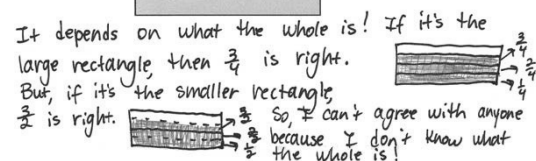 It depends on what the whole is! If it's the
large rectangle, then 3/4 is right.
But, if it's the smaller rectangle,
3/2 is right.
So, I can't agree with anyone
because I don't know what
the whole is!
3/4
2/4
1/4
3/2
2/2
1/2